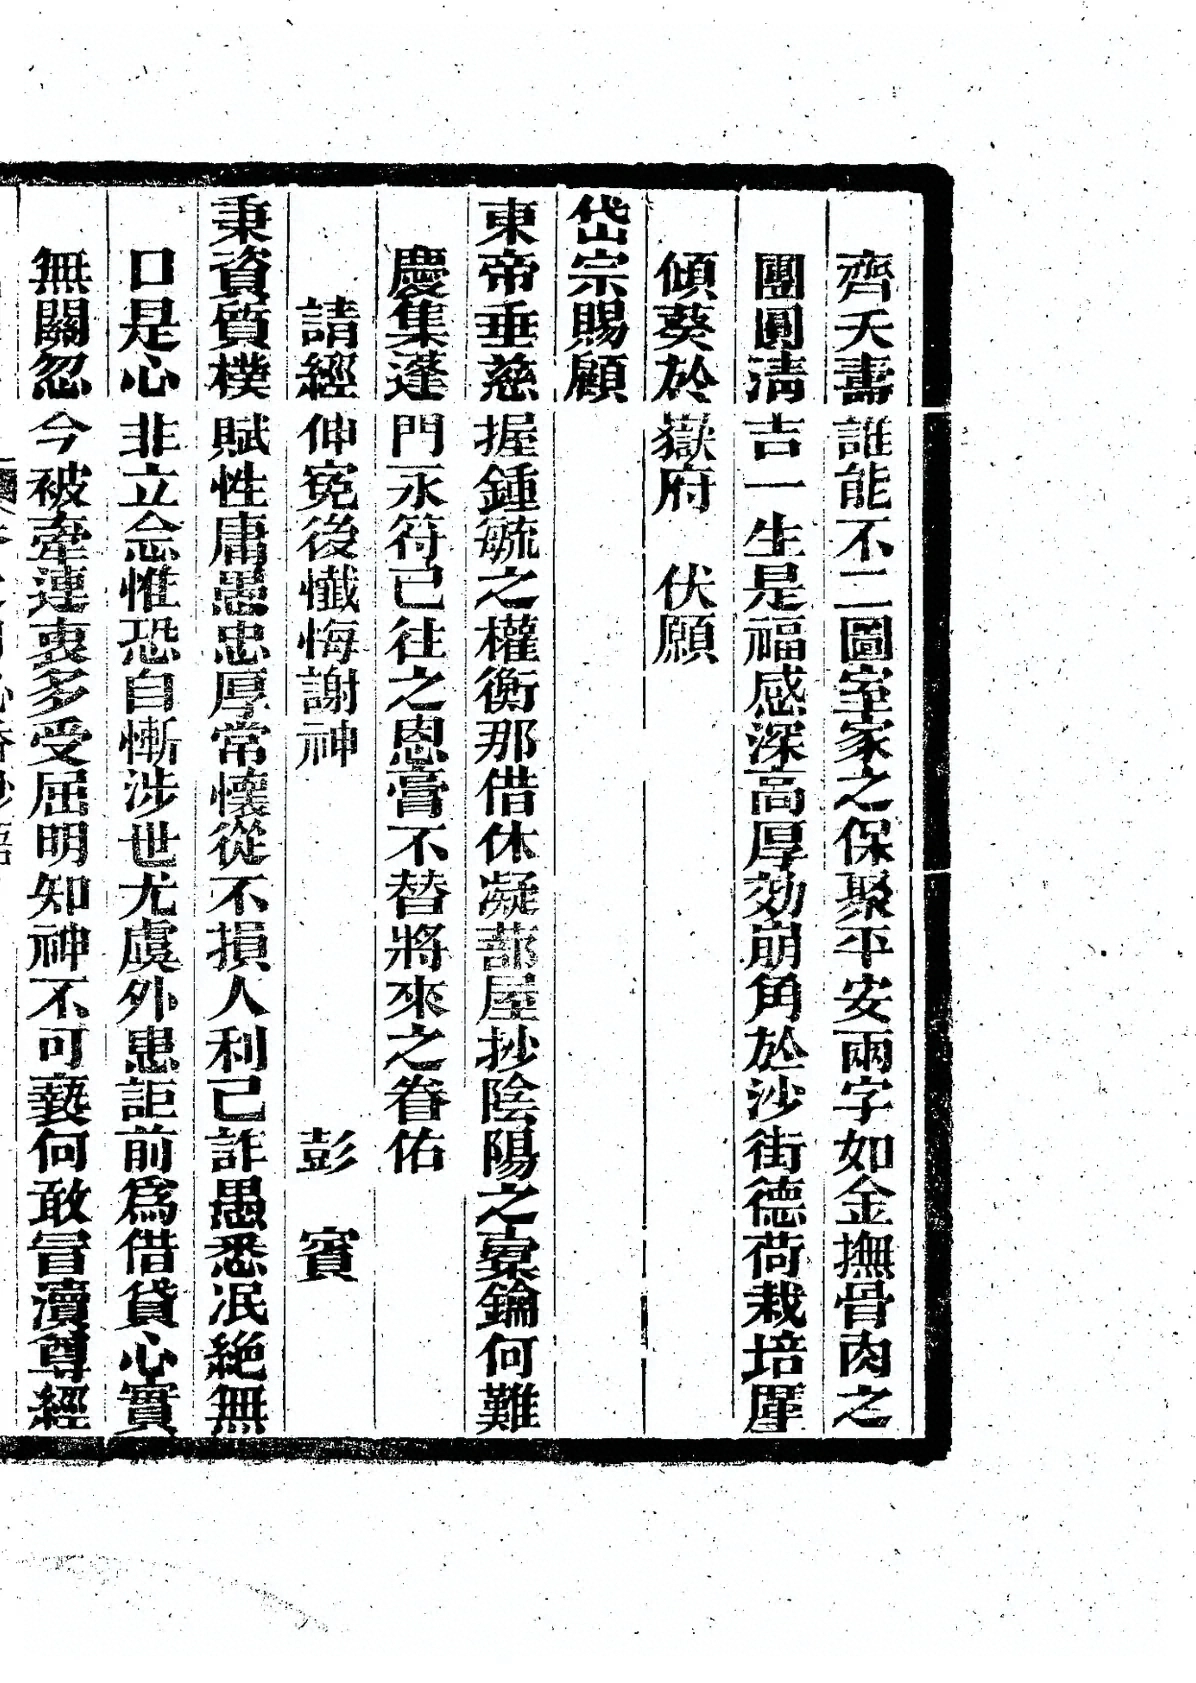 齊夭壽誰能不二圖室家之保聚平安兩字如金撫骨肉之
團圓清吉一生是福感深高厚効崩角於沙街德荷栽培犀
傾葵於嶽府　伏願
岱宗賜顧
東帝垂慈握鍾毓之權衡那借休凝蔀屋抄陰陽之橐鑰何難
慶集蓬門永符已往之恩膏不替將來之眷佑
請經伸寃後懺悔謝神　彭　賓
秉資質樸賦性庸愚忠厚常懷從不損人利己詐愚悉泯絶無
口是心非立念惟恐自慚涉世尤虞外患詎前爲借貸心實
無關忽今被牽連衷多受屈明知神不可褻何敢冒瀆尊經